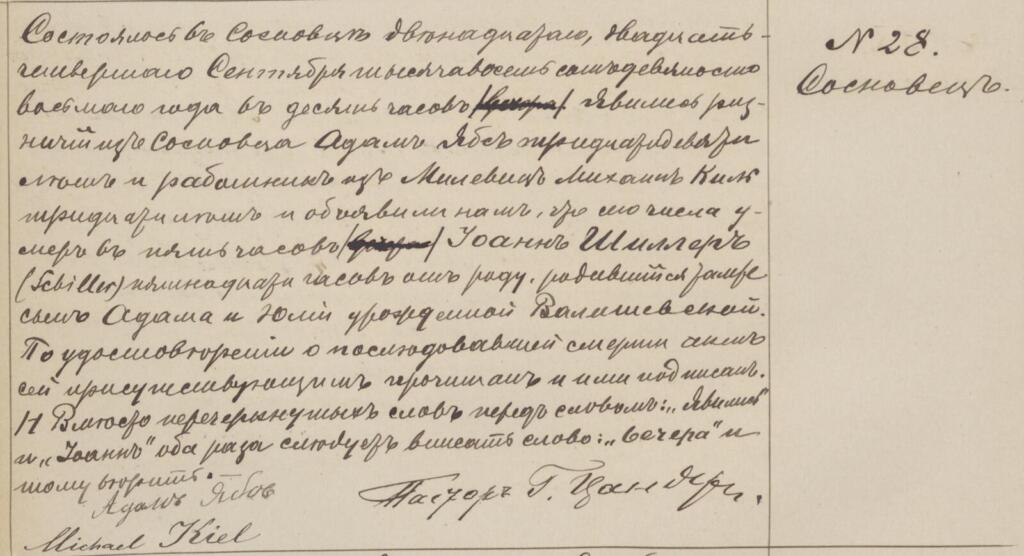 Состоялось въ Сосновцѣ двѣнадцатаго, двадцать-
четвертаго Сентября тысяча восемь сотъ девяносто
восьмаго года въ десять часовъ явились рѣз-
ничій изъ Сосновца Адамъ Ябсъ тридцати девяти
лѣтъ и работникъ изъ Милевицъ Михаилъ Киль
тридцати лѣтъ и объявили намъ, что сего числа у-
меръ въ пять часовъ Іоаннъ Шиллеръ
(Schiller) пятнадцати часовъ отъ роду, родившійся тамже
сынъ Адама и Юліи урожденной Валишевской.
По удостовѣреніи о послѣдовавшей смерти актъ
сей присутствующимъ прочитанъ и ими подписанъ.
Вмѣсто перечеркнутыхъ словъ передъ словомъ: „явились"
и „Іоаннъ" оба раза слѣдуетъ вписать слово: „вечера" и
тому вѣрить.
Адамъ Ябсъ
Пасторъ Г. Цандеръ.
Michael Kiel
N 28.
Сосновецъ.